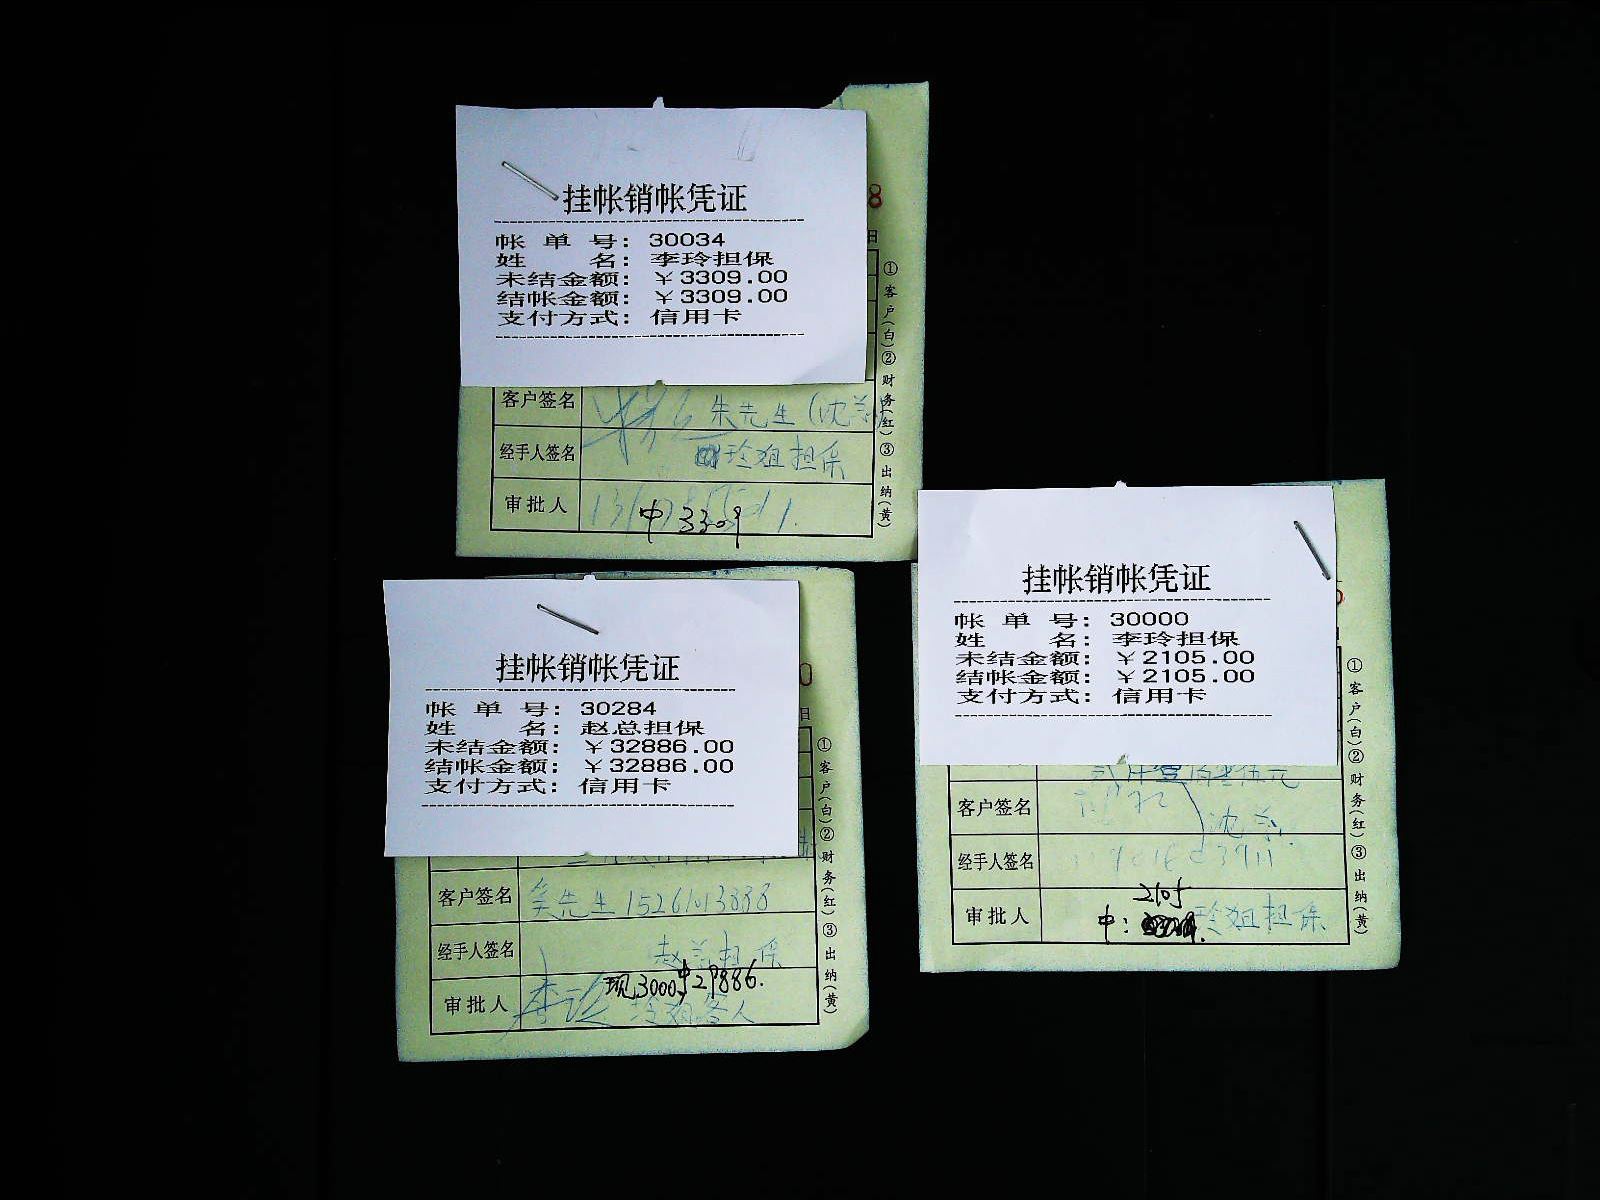 挂帐销帐凭证
帐 单 号: 30034
姓 名: 李玲担保
未结金额: ￥3309.00
结帐金额: ￥3309.00
支付方式: 信用卡
8
日
①客户(白)②财务(红)③出纳(黄)
客户签名 朱先生(沈
经手人签名 玲姐担保
审批人
中3309
挂帐销帐凭证
帐 单 号: 30284
姓 名: 赵总担保
未结金额: ￥32886.00
结帐金额: ￥32886.00
支付方式: 信用卡
0
日
①客户(白)②财务(红)③出纳(黄)
客户签名 吴先生 15261013888
经手人签名 赵总担保
现3000 中29886.
审批人 玲姐客人
挂帐销帐凭证
帐 单 号: 30000
姓 名: 李玲担保
未结金额: ￥2105.00
结帐金额: ￥2105.00
支付方式: 信用卡
①客户(白)②财务(红)③出纳(黄)
客户签名
经手人签名
2105
审批人 中: 玲姐担保